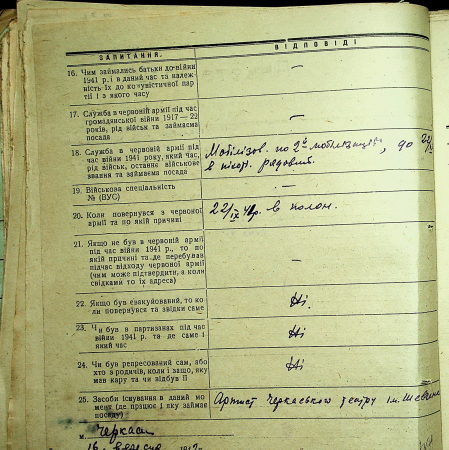 ЗАПИТАННЯ.
ВІДПОВІДІ
16. Чим займались батьки до війни
1941 р. і в даний час та належ-
ність їх до комуністичної пар
тії і з якого часу
—
17. Служба в червоній армії під час
громадянської війни 1917—22
років, рід військ та займаєма
посада
—
18. Служба в червоній армії під
час війни 1941 року, який час,
рід військ, останнє військове
ввання та займаєма посада
Мобілізов. по 2й мобілізації, до
в піхоті рядовий.
19. Військова спеціяльність
№ (ВУС)
—
20. Коли повернувся з червоної
армії та по якій причині
22/IX 41р. в полон.
21. Якщо не був в червоній армії
під час війни 1941 р., то по
якій причині та де перебував
підчас відходу червоної армії
(чим може підтвердити, а коли
свідками то їх адреса)
—
22. Якщо був евакуйований, то ко
ли повернувся та звідки саме
Ні.
23. Чи був в партизанах під час
війни 1941 р. та де саме і
який час
Ні
24. Чи був репресований сам, або
хто з родичів, коли і защо, яку
мав кару та чи відбув її
Ні
25. Засоби існування в даний мо
мент (де працює і яку займає
посаду)
Артист Черкаського театру ім.
м. Черкаси
16.